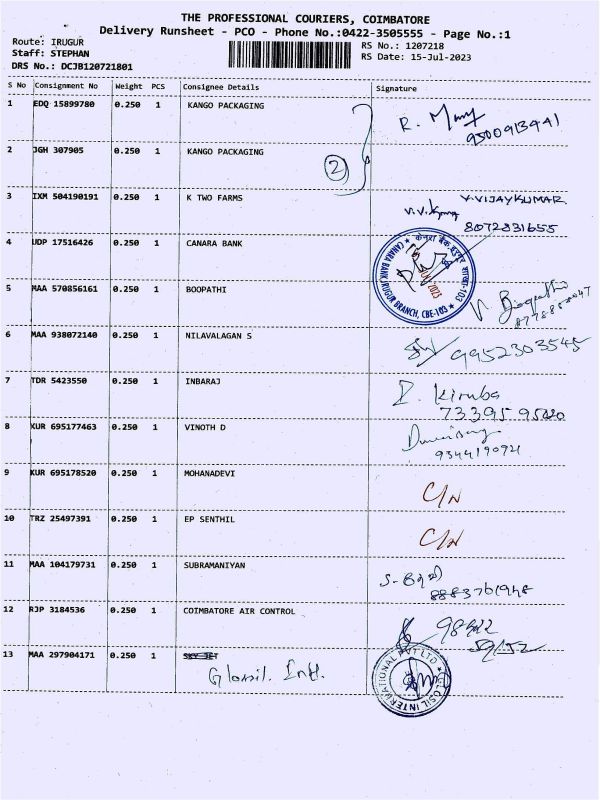 THE PROFESSIONAL COURIERS, COIMBATORE
Delivery Runsheet - PCO - Phone No.:0422-3505555 - Page No.:1
Route: IRUGUR
RS No.: 1207218
Staff: STEPHAN
RS Date: 15-Jul-2023
DRS No.: DCJB120721801
S No Consignment No Weight PCS Consignee Details Signature
1 EDQ 15899780 0.250 1 KANGO PACKAGING
R.
2 JGH 307905 0.250 1 KANGO PACKAGING
2
3 IXM 504190191 0.250 1 K TWO FARMS V.VIJAYKUMAR
8072831655
4 UDP 17516426 0.250 1 CANARA BANK
CANARA BANK IRUGUR BRANCH, CBE-103
5 MAA 570856161 0.250 1 BOOPATHI
6 MAA 938072140 0.250 1 NILAVALAGAN S
9952303545
7 TDR 5423550 0.250 1 INBARAJ
Kiruba
73395 95020
8 KUR 695177463 0.250 1 VINOTH D
9344190921
9 KUR 695178520 0.250 1 MOHANADEVI
C/N
10 TRZ 25497391 0.250 1 EP SENTHIL
C/N
11 MAA 104179731 0.250 1 SUBRAMANIYAN
8883761948
12 RJP 3184536 0.250 1 COIMBATORE AIR CONTROL
13 MAA 297904171 0.250 1
Glosil. Intl.
GLOSIL INTERNATIONAL PVT LTD